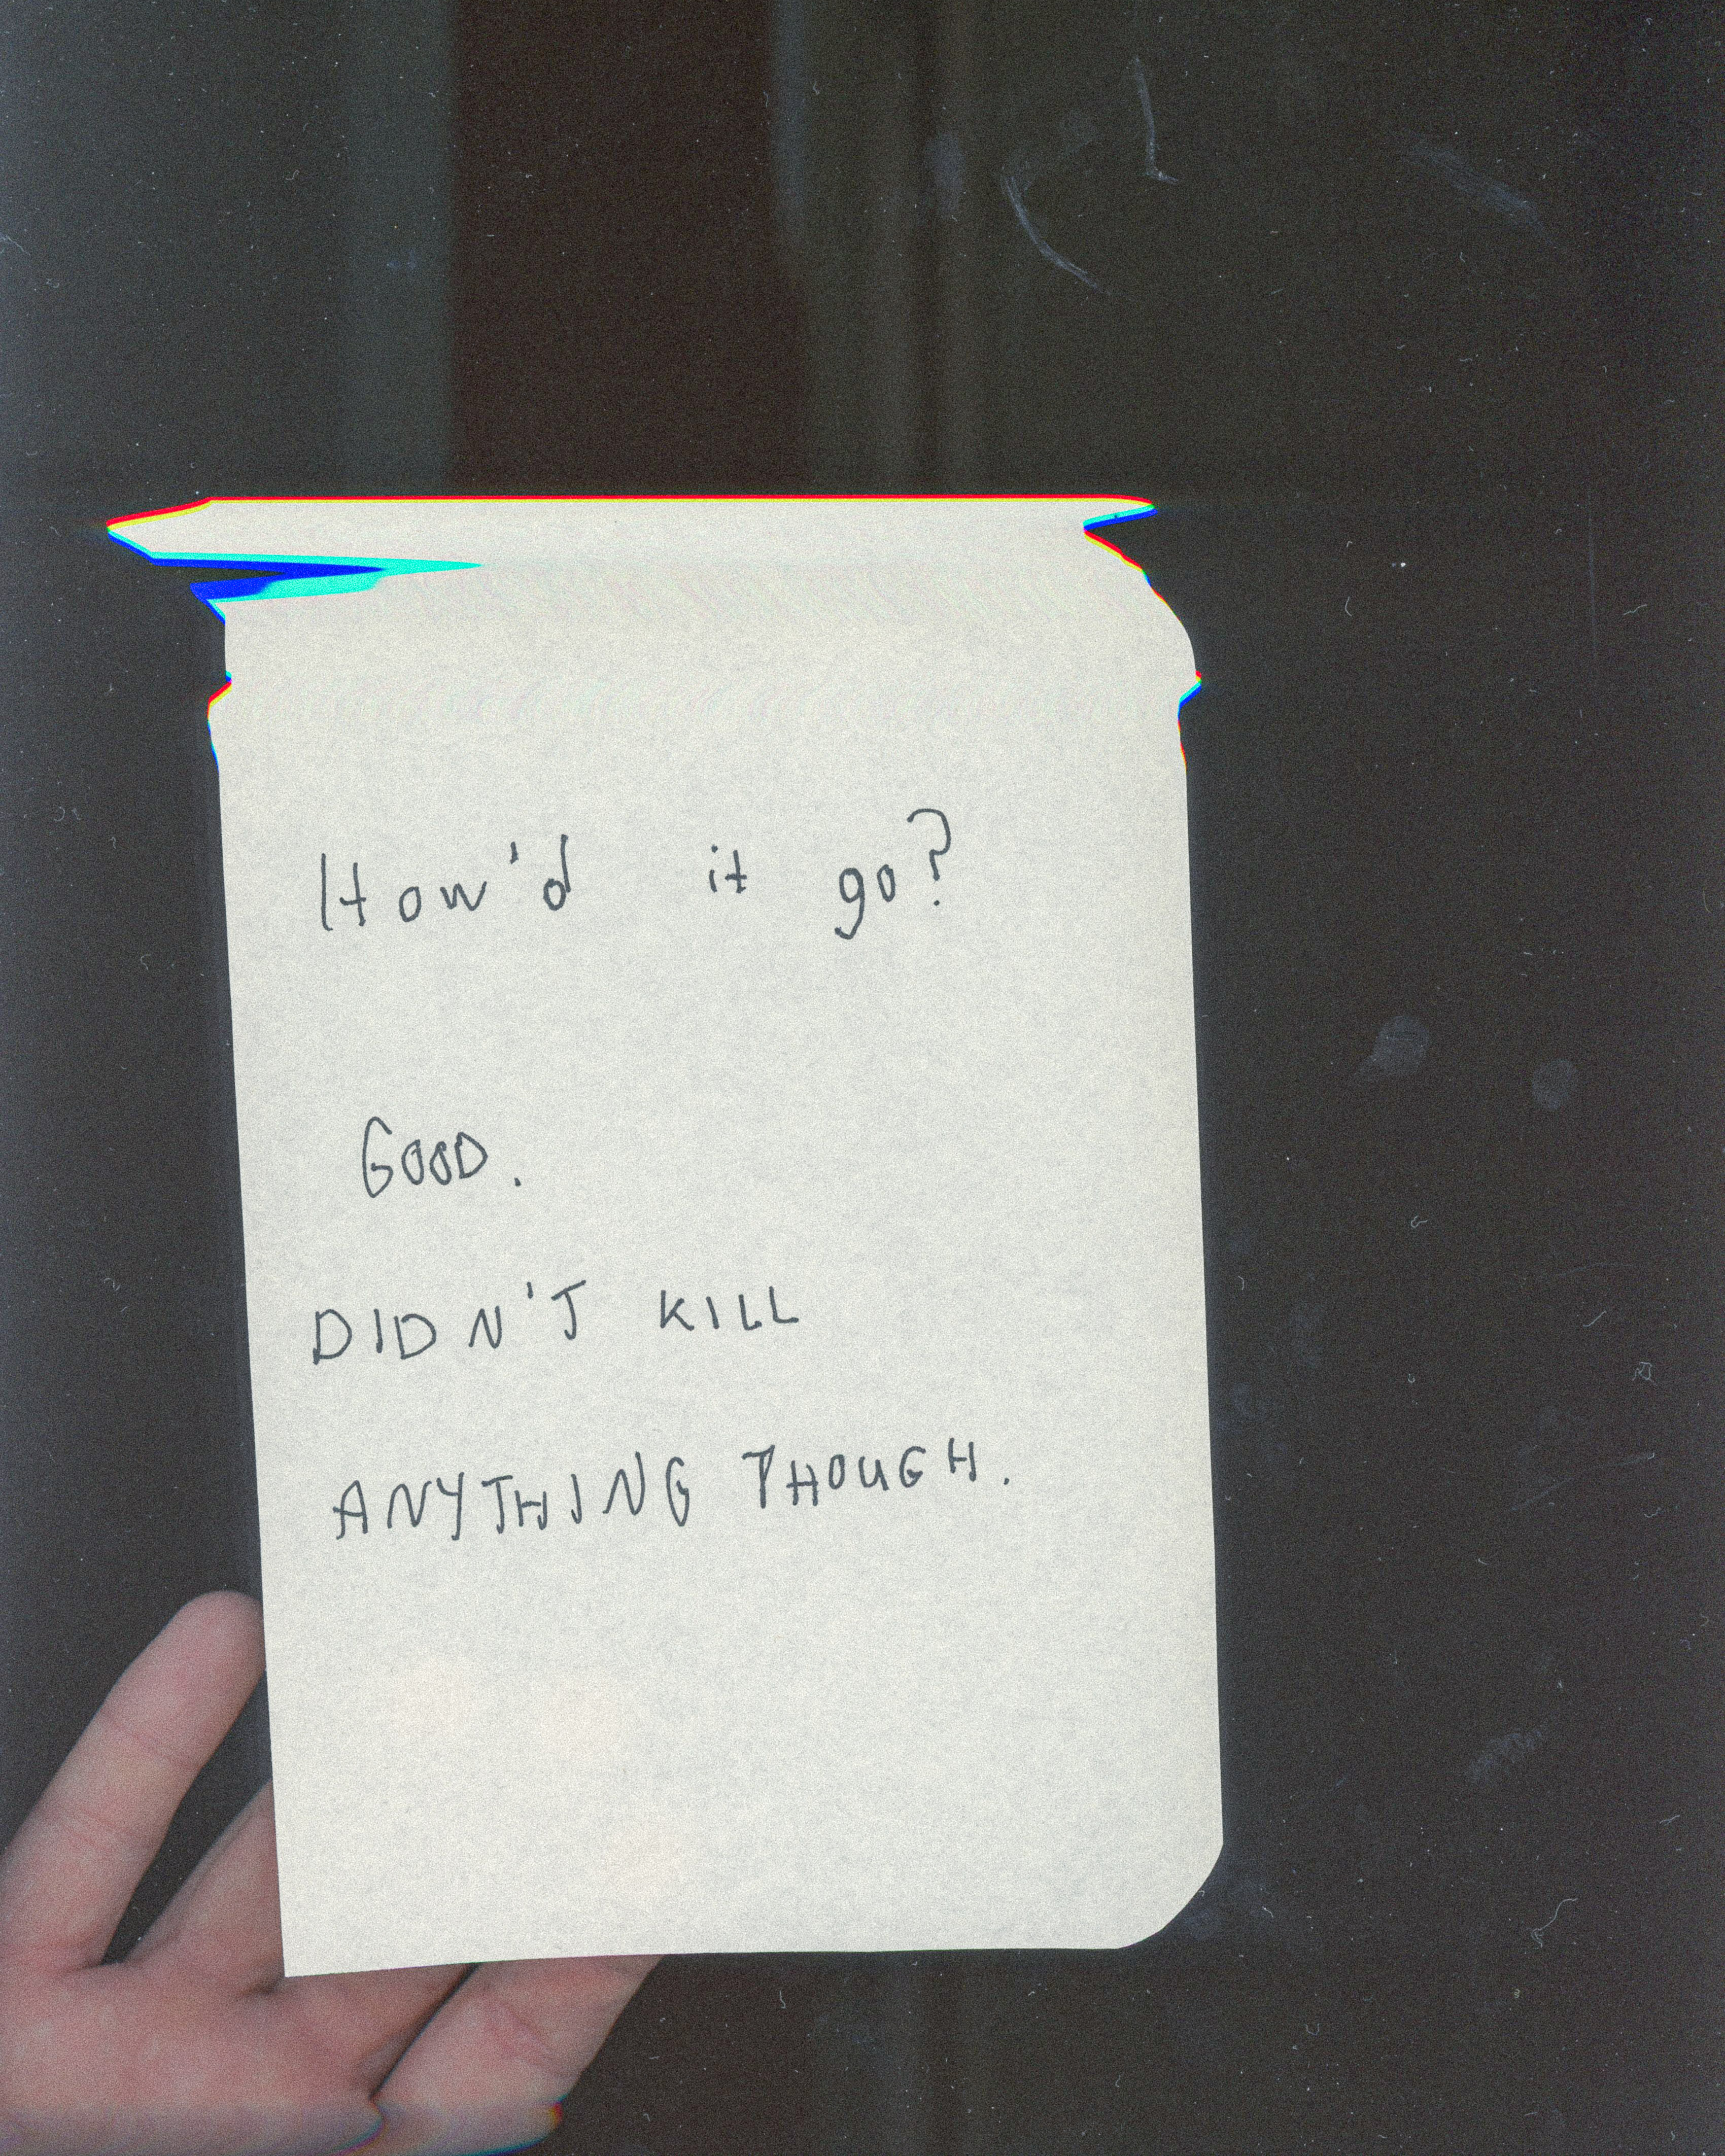 How'd it go?
GOOD.
DIDN'T KILL
ANYTHING THOUGH.